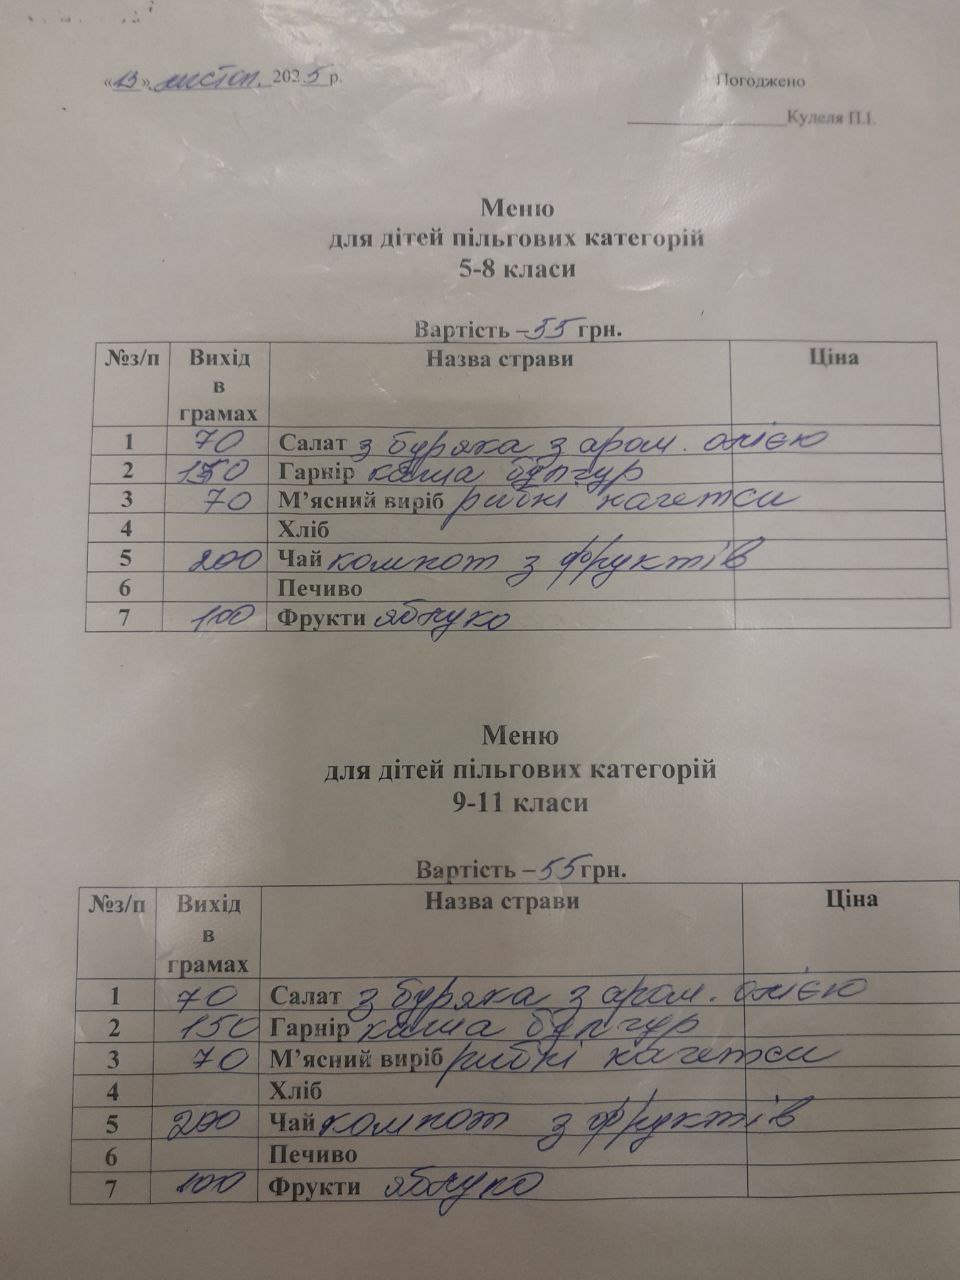 «13» листоп. 2025 р.
Погоджено
Кулеля П.І.
Меню
для дітей пільгових категорій
5-8 класи
Вартість – 55 грн.
№з/п Вихід в грамах Назва страви Ціна
1 70 Салат з буряка з аром. олією
2 150 Гарнір каша булгур
3 70 М’ясний виріб рибні нагетси
4 Хліб
5 200 Чай компот з фруктів
6 Печиво
7 100 Фрукти яблуко
Меню
для дітей пільгових категорій
9-11 класи
Вартість – 55 грн.
№з/п Вихід в грамах Назва страви Ціна
1 70 Салат з буряка з аром. олією
2 150 Гарнір каша булгур
3 70 М’ясний виріб рибні нагетси
4 Хліб
5 200 Чай компот з фруктів
6 Печиво
7 100 Фрукти яблуко